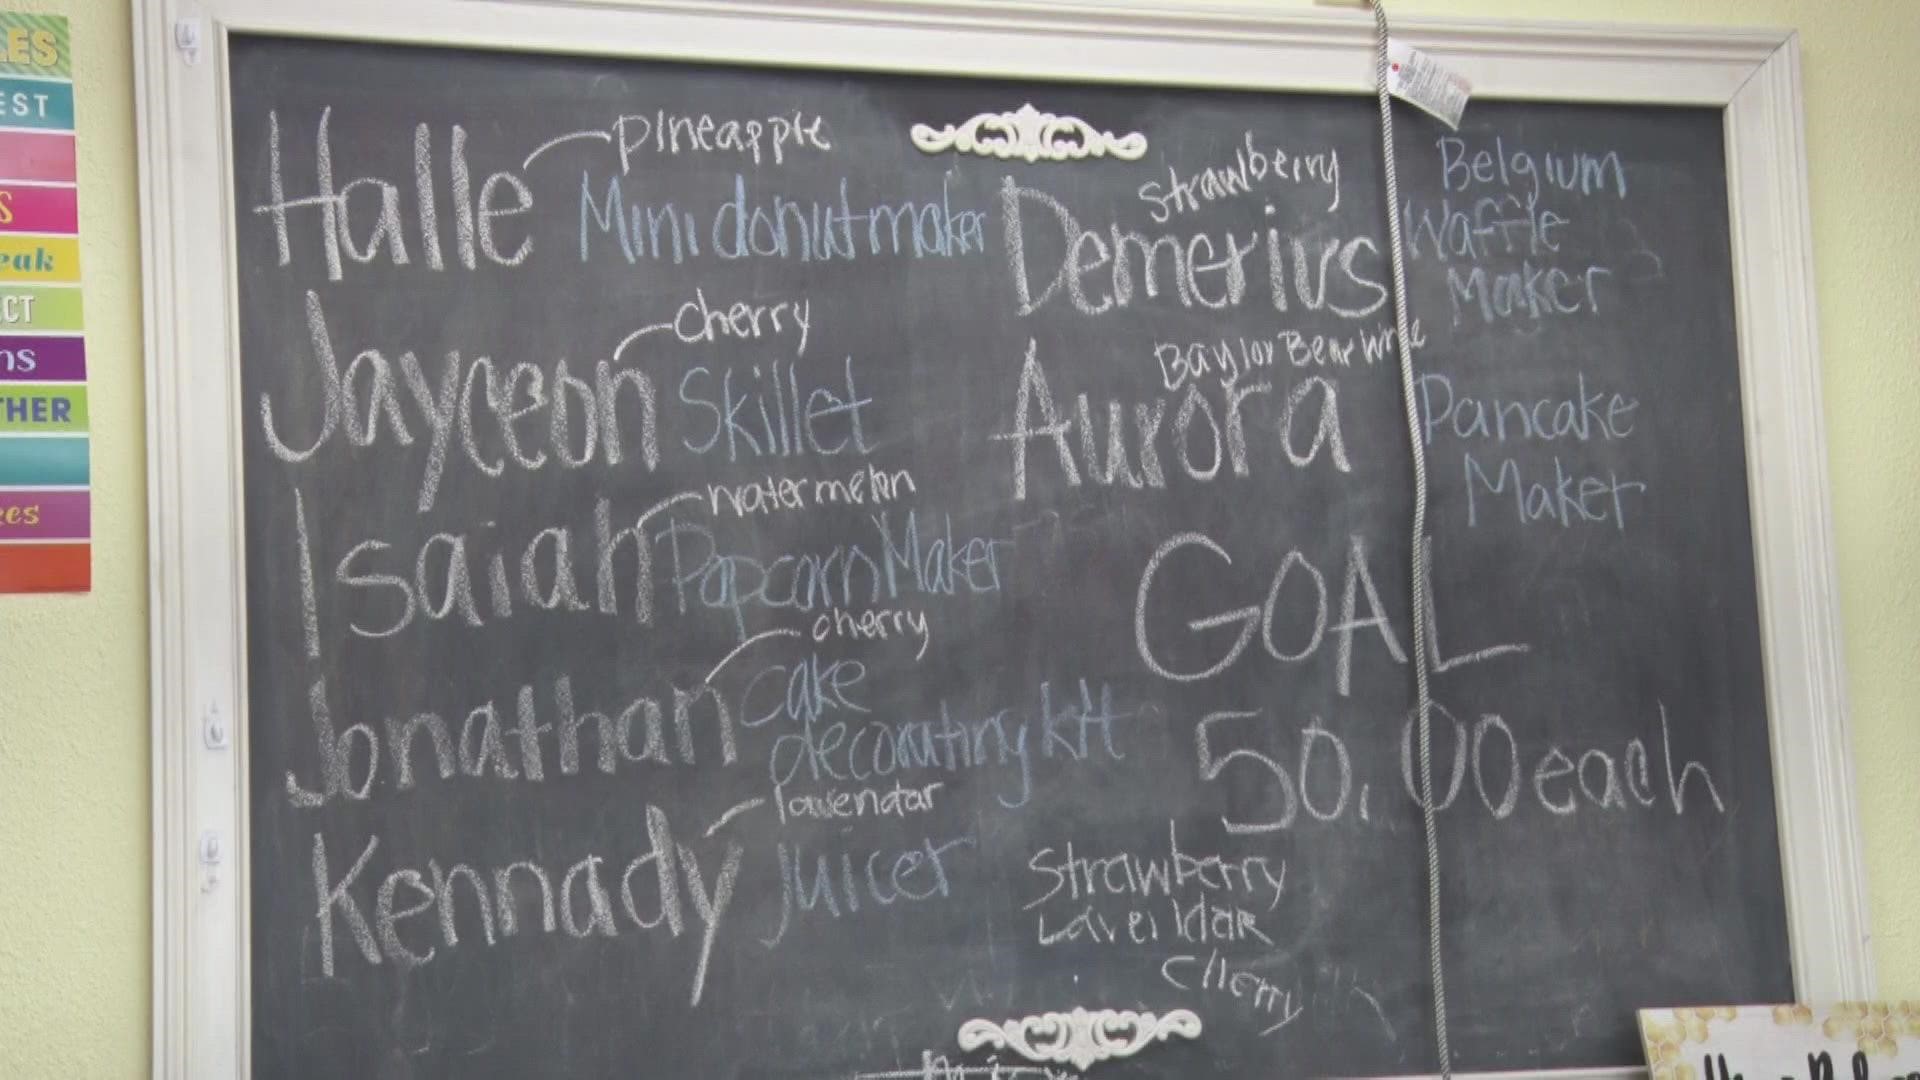 LES
EST
S
eak
ECT
ns
THER
kes
Halle pineapple
Mini donut maker
Jayceon cherry
Skillet
Isaiah watermelon
Popcorn Maker
Jonathan cherry
cake
decorating kit
Kennady lavendar
Juicer
Demerius strawberry
Belgium
Waffle
Maker
Aurora Baylor Bear
Pancake
Maker
GOAL
50.00 each
Strawberry
Lavendar
Cherry